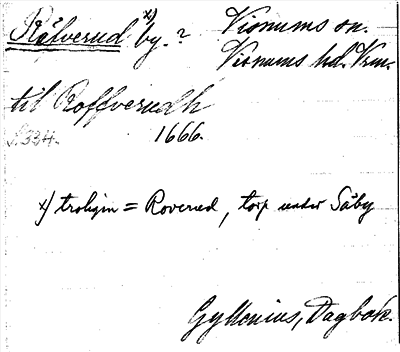 Rålverud by.? x) Visnums sn.
Visnums hd. Vrm.
til Roffverudh
S. 334. 1666.
x) troligen = Roverud, torp under Säby
Gyllenius, Dagbok.